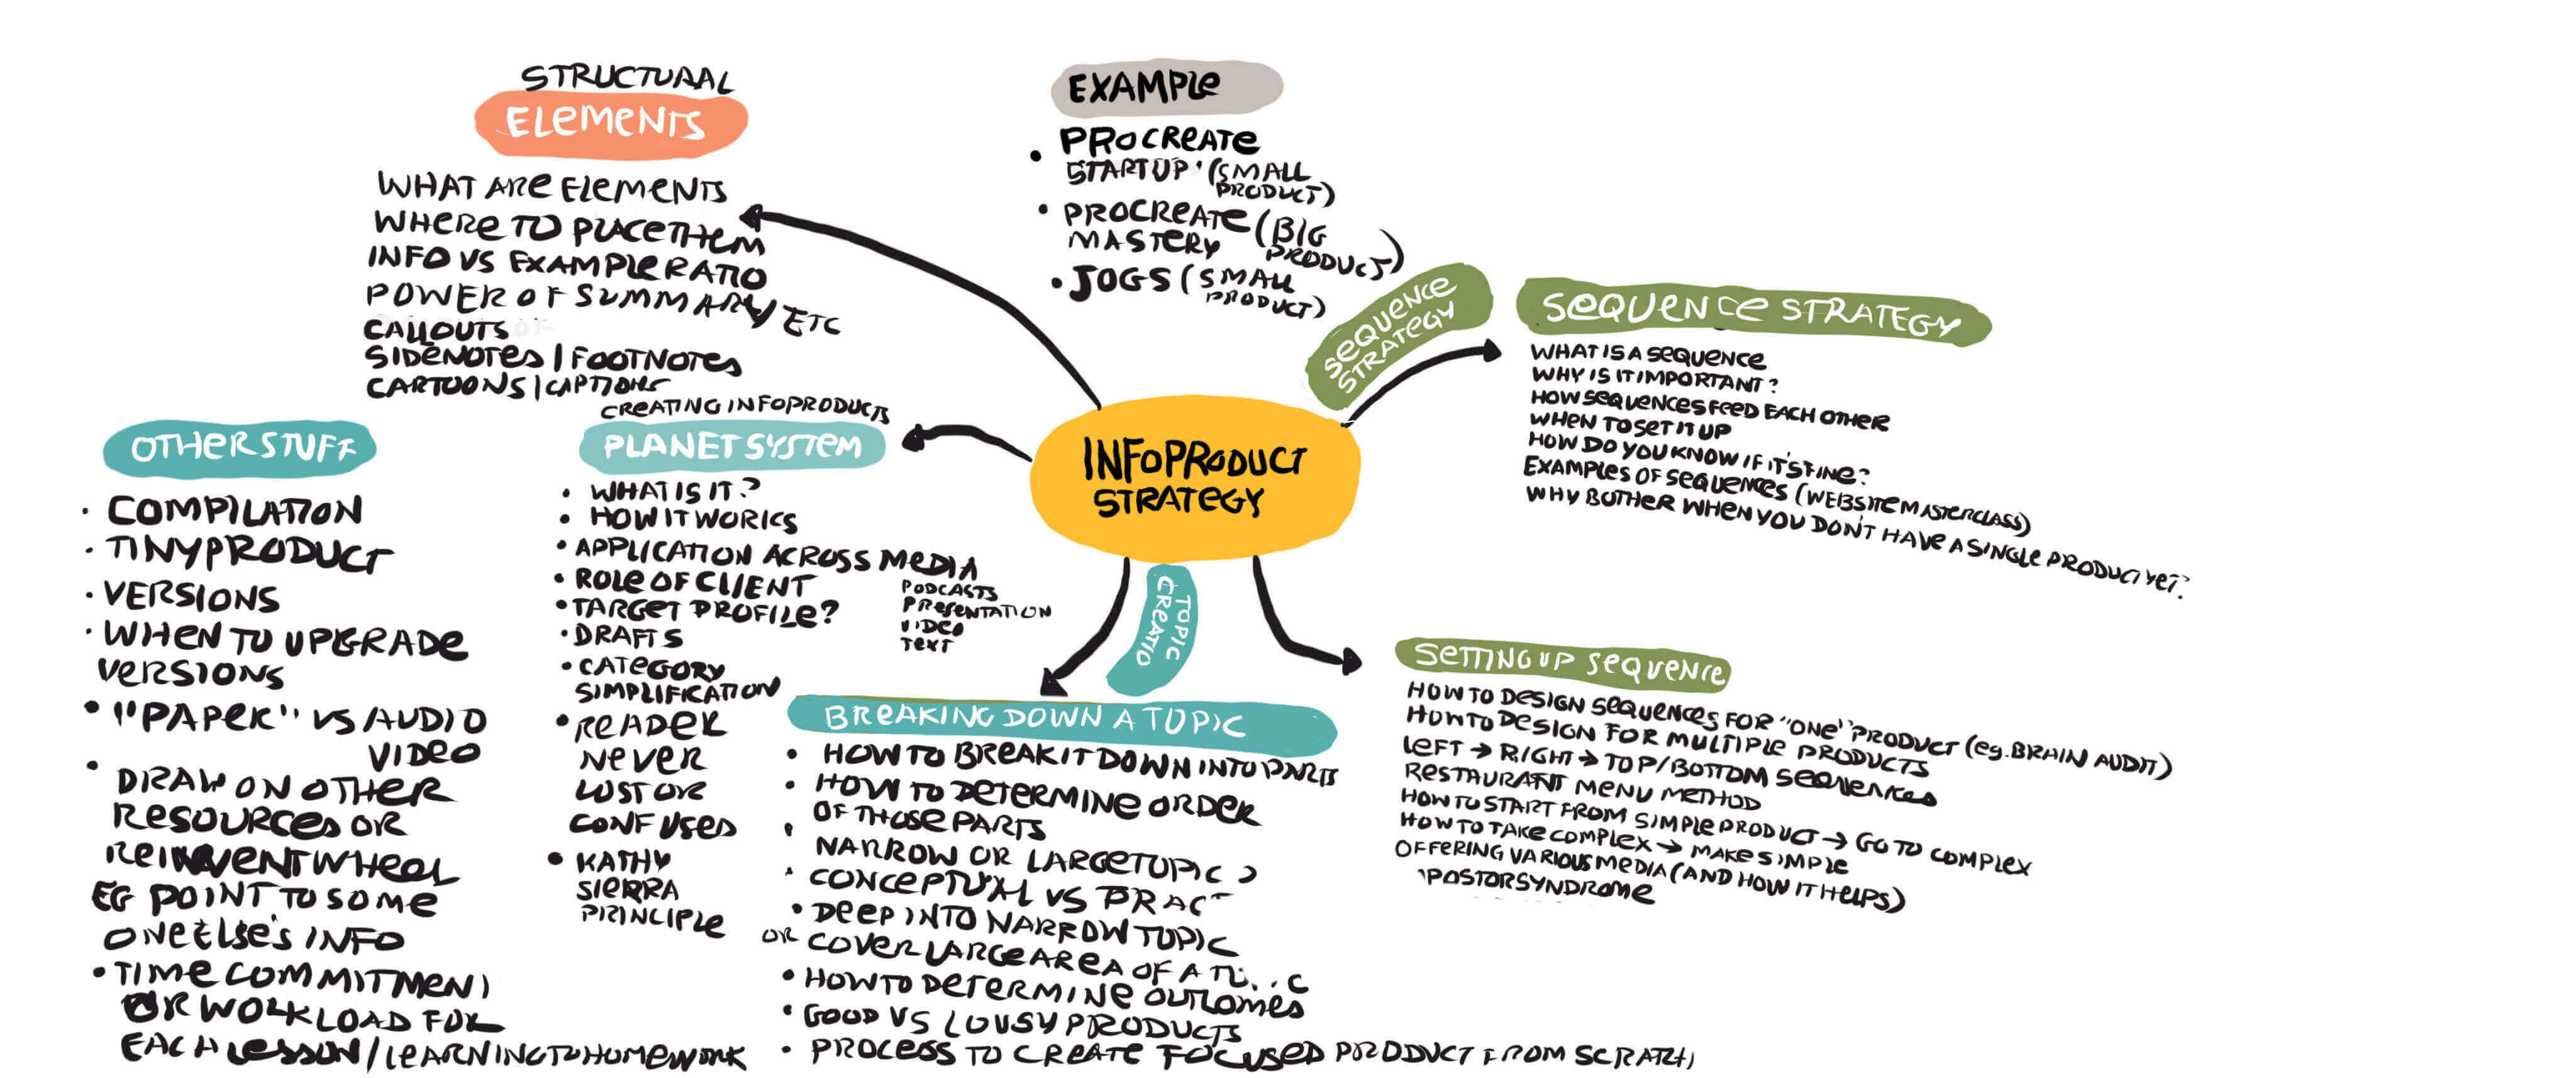 STRUCTURAL
ELEMENTS
WHAT ARE ELEMENTS
WHERE TO PLACE THEM
INFO VS EXAMPLE RATIO
POWER OF SUMMARY ETC
CALLOUTS
SIDENOTES | FOOTNOTES
CARTOONS | CAPTIONS
EXAMPLE
• PROCREATE
STARTUP (SMALL
PRODUCT)
• PROCREATE (BIG
MASTERY PRODUCT)
• JOGS (SMALL
PRODUCT)
SEQUENCE
STRATEGY
SEQUENCE STRATEGY
WHAT IS A SEQUENCE
WHY IS IT IMPORTANT?
HOW SEQUENCES FEED EACH OTHER
WHEN TO SET IT UP
HOW DO YOU KNOW IF IT'S FINE?
EXAMPLES OF SEQUENCES (WEBSITE MASTERCLASS)
WHY BOTHER WHEN YOU DON'T HAVE A SINGLE PRODUCT YET?
INFOPRODUCT
STRATEGY
OTHER STUFF
• COMPILATION
• TINY PRODUCT
• VERSIONS
• WHEN TO UPGRADE
VERSIONS
• "PAPER" VS AUDIO
VIDEO
• DRAW ON OTHER
RESOURCES OR
REINVENT WHEEL
EG POINT TO SOME
ONE ELSE'S INFO
• TIME COMMITMENT
OR WORKLOAD FOR
EACH LESSON / LEARNING TO HOMEWORK
CREATING INFOPRODUCTS
PLANET SYSTEM
• WHAT IS IT?
• HOW IT WORKS
• APPLICATION ACROSS MEDIA
PODCASTS
PRESENTATION
VIDEO
TEXT
• ROLE OF CLIENT
• TARGET PROFILE?
• DRAFTS
• CATEGORY
SIMPLIFICATION
• READER
NEVER
LOST OR
CONFUSED
• KATHY
SIERRA
PRINCIPLE
TOPIC
CREATIO
BREAKING DOWN A TOPIC
• HOW TO BREAK IT DOWN INTO PARTS
• HOW TO DETERMINE ORDER
OF THOSE PARTS
• NARROW OR LARGE TOPIC ?
• CONCEPTUAL VS PRACT
• DEEP INTO NARROW TOPIC
OR COVER LARGE AREA OF A
• HOW TO DETERMINE OUTCOMES
• GOOD VS LOUSY PRODUCTS
• PROCESS TO CREATE FOCUSED PRODUCT FROM SCRATCH
SETTING UP SEQUENCE
HOW TO DESIGN SEQUENCES FOR "ONE" PRODUCT (eg. BRAIN AUDIT)
HOW TO DESIGN FOR MULTIPLE PRODUCTS
LEFT → RIGHT → TOP/BOTTOM SEQUENCES
RESTAURANT MENU METHOD
HOW TO START FROM SIMPLE PRODUCT → GO TO COMPLEX
HOW TO TAKE COMPLEX → MAKE SIMPLE
OFFERING VARIOUS MEDIA (AND HOW IT HELPS)
'POSTOR SYNDROME